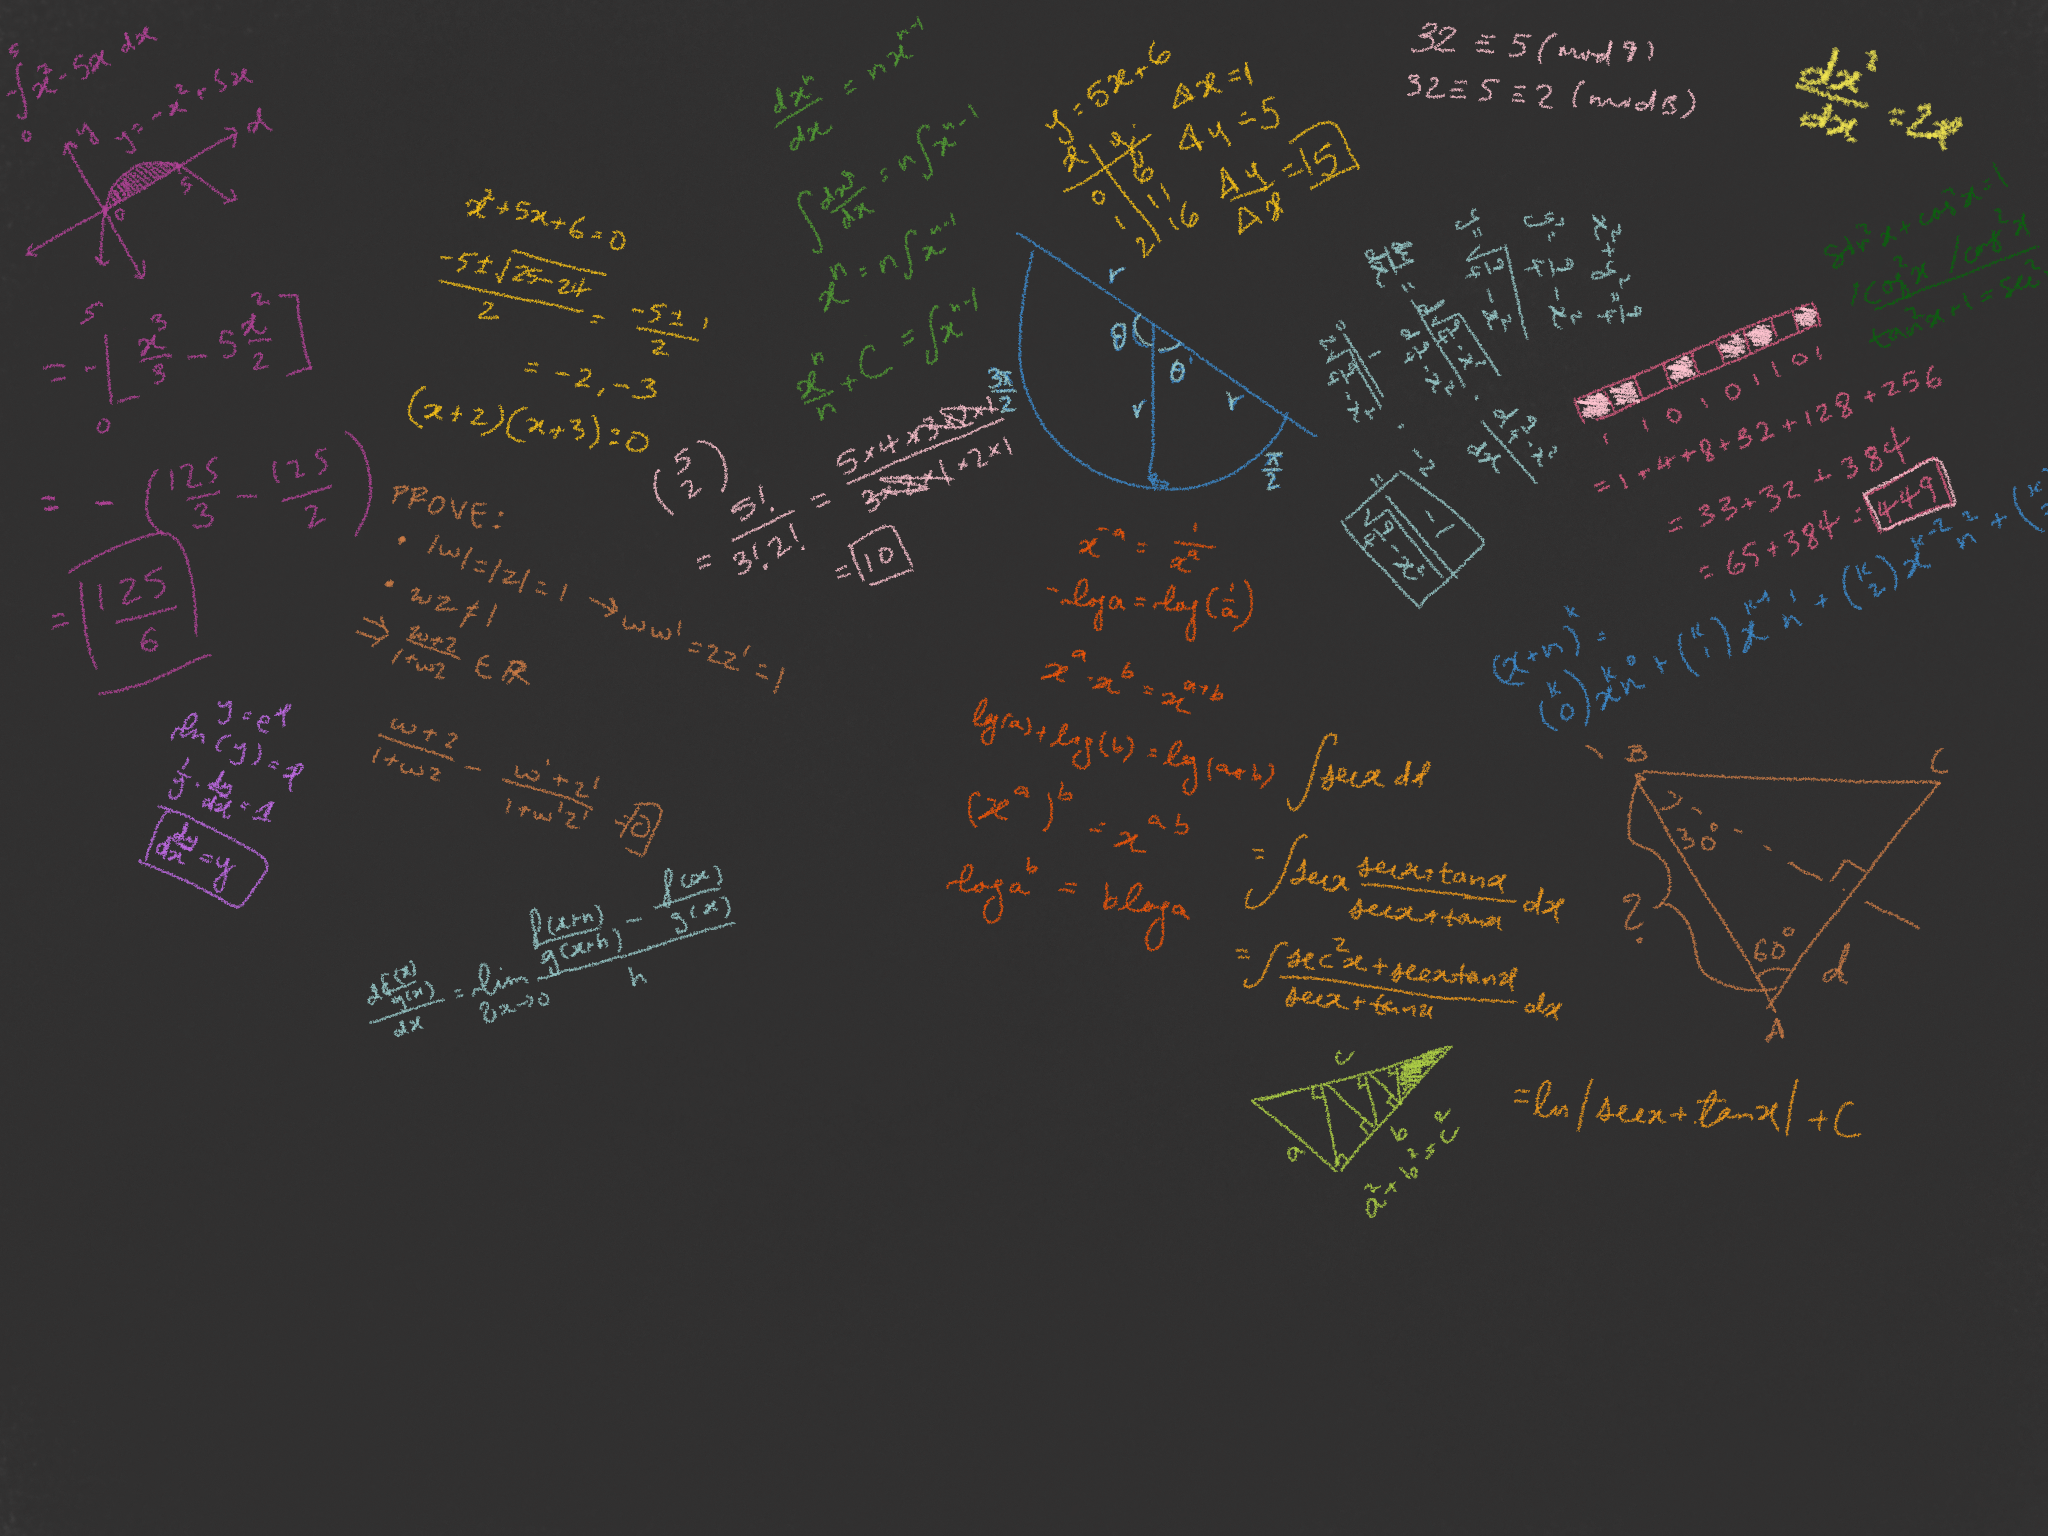 ∫₀⁵ x² - 5x dx
y = -x² + 5x
y
x
0
5
= -[x³/3 - 5x²/2]₀⁵
= - (125/3 - 125/2)
= 125/6
x² + 5x + 6 = 0
(-5 ± √(25-24))/2 = (-5 ± 1)/2
= -2, -3
(x+2)(x+3) = 0
PROVE:
• |w| = |z| = 1 → ww' = zz' = 1
• wz ≠ 1
⇒ (w+z)/(1+wz) ∈ R
(w+z)/(1+wz) - (w'+z')/(1+w'z') = 0
y = eˣ
ln(y) = x
1/y · dy/dx = 1
dy/dx = y
d(f(x)/g(x))/dx = lim δx→0 (f(x+h)/g(x+h) - f(x)/g(x))/h
dxⁿ/dx = nxⁿ⁻¹
∫ dxⁿ/dx = n∫xⁿ⁻¹
xⁿ = n∫xⁿ⁻¹
xⁿ/n + C = ∫xⁿ⁻¹
(5 2)
= 5!/(3!2!) = (5×4×3×2×1)/(3×2×1×2×1)
= 10
y = 5x+6
x y
0 6
1 11
2 16
Δx = 1
Δy = 5
Δy/Δx = 5
r
θ
θ
r
r
3π/2
π/2
x⁻ᵃ = 1/xᵃ
-log a = log(1/a)
xᵃ · xᵇ = xᵃ⁺ᵇ
log(a) + log(b) = log(a+b)
(xᵃ)ᵇ = xᵃᵇ
log aᵇ = b log a
∫ secx dx
= ∫ secx (secx+tanx)/(secx+tanx) dx
= ∫ (sec²x + secxtanx)/(secx+tanx) dx
= ln|secx+tanx| + C
c
a
b
a² + b² = c²
32 ≡ 5 (mod 9)
32 ≡ 5 ≡ 2 (mod 3)
dx²/dx = 2x
sin²x + cos²x = 1
/cos²x /cos²x
tan²x + 1 = sec²
1 1 0 1 0 1 1 0 1
= 1+4+8+32+128+256
= 33+32+384
= 65+384 = 449
(x+n)ᵏ =
(k 0)xᵏn⁰ + (k 1)xᵏ⁻¹n¹ + (k 2)xᵏ⁻²n² + (k
B
C
30°
?
60°
d
A